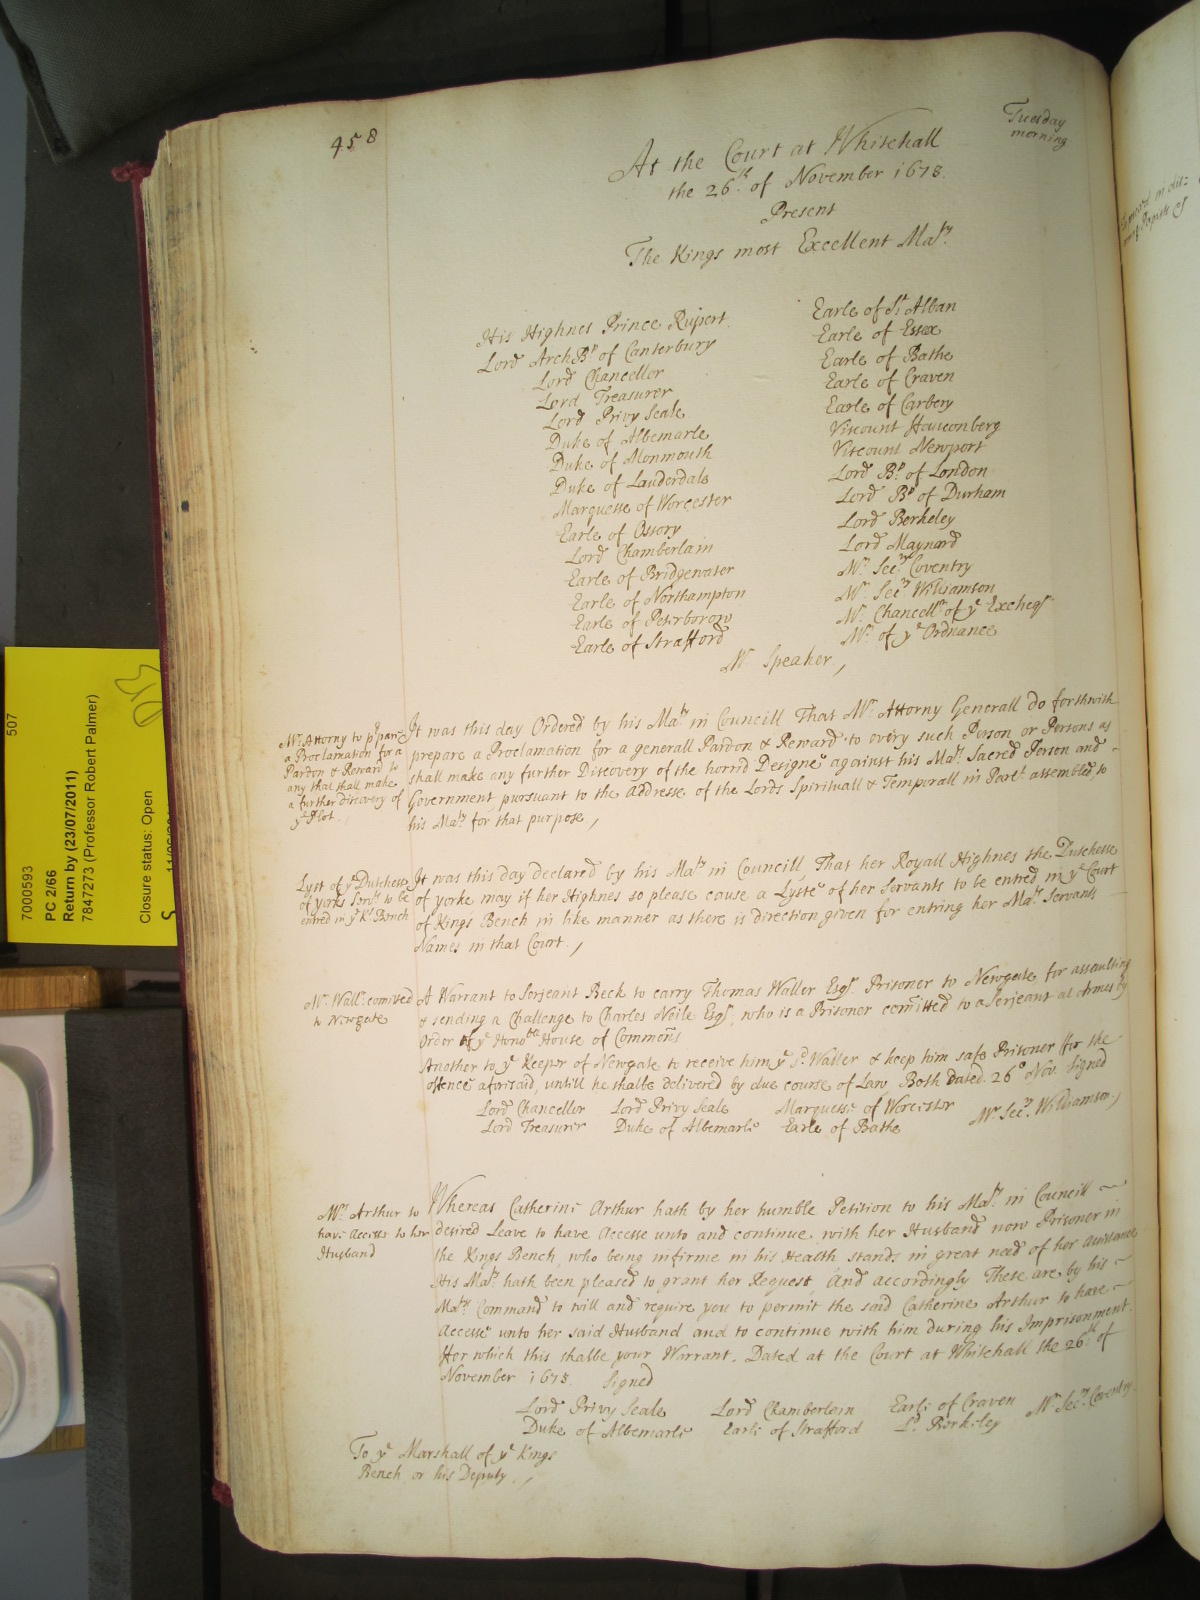 458
Tuesday
morning
At the Court at Whitehall
the 26th. of November 1678.
Present
The Kings most Excellent Maty.
His Highnes Prince Rupert
Lord ArchBp. of Canterbury
Lord Chancellor
Lord Treasurer
Lord Privy Seale
Duke of Albemarle
Duke of Monmouth
Duke of Lauderdale
Marquesse of Worcester
Earle of Ossory
Lord Chamberlain
Earle of Bridgewater
Earle of Northampton
Earle of Peterborow
Earle of Strafford
Earle of St Alban
Earle of Essex
Earle of Bathe
Earle of Craven
Earle of Carbery
Viscount Fauconberg
Viscount Newport
Lord Bp. of London
Lord Bp of Durham
Lord Berkeley
Lord Maynard
Mr. Secry. Coventry
Mr. Secry Williamson
Mr. Chancellr. of ye Excheqr.
Mr. of ye Ordnance
Mr Speaker,
Mr. Attorny to prpare
a Proclamation for a
Pardon & Reward to
any that shall make
a further discovery of
ye Plot.
It was this day Ordered by his Maty. in Councill That Mr. Attorny Generall do forthwith
prepare a Proclamation for a generall Pardon & Reward to every such Person or Persons as
shall make any further Discovery of the horrid Designe against his Mats. Sacred Person and
Government, pursuant to the Addresse of the Lords Spirituall & Temporall in Parlt. assembled to
his Maty. for that purpose,
Lyst of ye Dutchesse
of yorks Servts. to be
entred in ye Ks. Bench
It was this day declared by his Maty. in Councill, That her Royall Highnes the Dutchesse
of yorke may if her Highnes so please cause a Lyste of her Servants to be entred in ye Court
of Kings Bench in like manner as there is direction given for entring her Mats. Servants
Names in that Court.,
Mr. Wallr. comitted
to Newgate
A Warrant to Serjeant Beck to carry Thomas Waller Esqr. Prisoner to Newgate for assaulting
& sending a Challenge to Charles Neile Esqr, who is a Prisoner comitted to a Serjeant at Armes by
Order of ye Honoble House of Commons
Another to ye Keeper of Newgate to receive him ye sd. Waller & keep him safe Prisoner for the
offence aforesaid, untill he shalbe delivered by due course of Law. Both Dated. 26o Nov. Signed
Lord Chancellor Lord Privy Seale Marquesse of Worcester Mr Secry. Williamson,
Lord Treasurer Duke of Albemarle Earle of Bathe
Mrs. Arthur to
have Accesse to her
Husband
Whereas Catherine Arthur hath by her humble Petition to his Maty. in Councill
desired Leave to have Accesse unto and continue with her Husband now Prisoner in
the Kings Bench, who being infirme in his Health stands in great need of her assistance
His Maty. hath been pleased to grant her Request, And accordingly These are by his
Mats. Command to will and require you to permit the said Catherine Arthur to have
Accesse unto her said Husband and to continue with him during his Imprisonment.
For which this shalbe your Warrant. Dated at the Court at Whitehall the 26th of
November 1678. Signed
Lord Privy Seale Lord Chamberlein Earle of Craven Mr Secry. Coventry.
Duke of Albemarle Earle of Strafford Ld. Berkeley
To ye Marshall of ye Kings
Bench or his Deputy.,
507
7000593
PC 2/66
Return by (23/07/2011)
7847273 (Professor Robert Palmer)
Closure status: Open